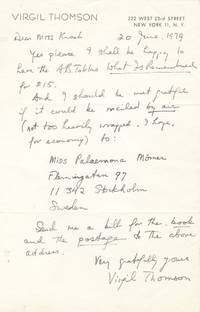 VIRGIL THOMSON
222 WEST 23rd STREET
NEW YORK 11, N.Y.
20 June, 1979
Dear Miss Kraab
Yes please I shall be happy to
have the A. B. Toklas What Is Remembered
for $15.
And I should be most grateful
if it could be mailed by air
(not too heavily wrapped, I hope,
for economy) to:
Miss Palaemona Mörner
Flemingatan 97
11 3 42 Stockholm
Sweden
Send me a bill for the book
and the postage to the above
address.
Very gratefully yours
Virgil Thomson